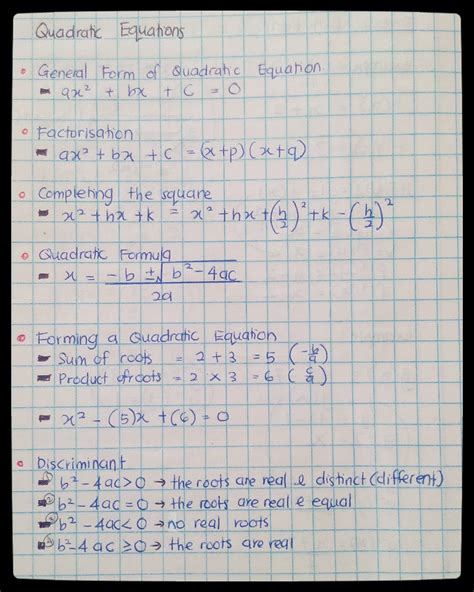 Quadratic Equations
• General Form of Quadratic Equation
- ax² + bx + c = 0
• Factorisation
- ax² + bx + c = (x+p)(x+q)
• Completing the square
- x² + hx + k = x² + hx + (h/2)² + k - (h/2)²
• Quadratic Formula
- x = -b ± √b²-4ac / 2a
• Forming a Quadratic Equation
- Sum of roots = 2 + 3 = 5 (-b/a)
- Product of roots = 2 × 3 = 6 (c/a)
- x² - (5)x + (6) = 0
• Discriminant
① b² - 4ac > 0 → the roots are real & distinct (different)
② b² - 4ac = 0 → the roots are real & equal
b² - 4ac < 0 → no real roots
b² - 4ac ≥ 0 → the roots are real